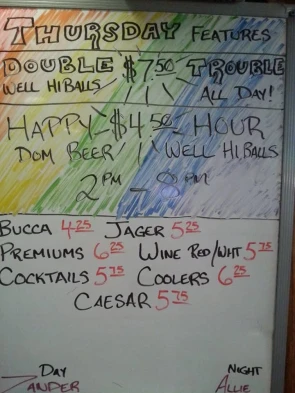 THURSDAY FEATURES
DOUBLE $7.50 TROUBLE
WELL HIBALLS ALL DAY!
HAPPY $4.50 HOUR
DOM BEER WELL HIBALLS
2 PM - PM
BUCCA 4.25 JAGER 5.25
PREMIUMS 6.25 WINE RED/WHT 5.75
COCKTAILS 5.75 COOLERS 6.25
CAESAR 5.75
DAY NIGHT
ZANDER ALLIE